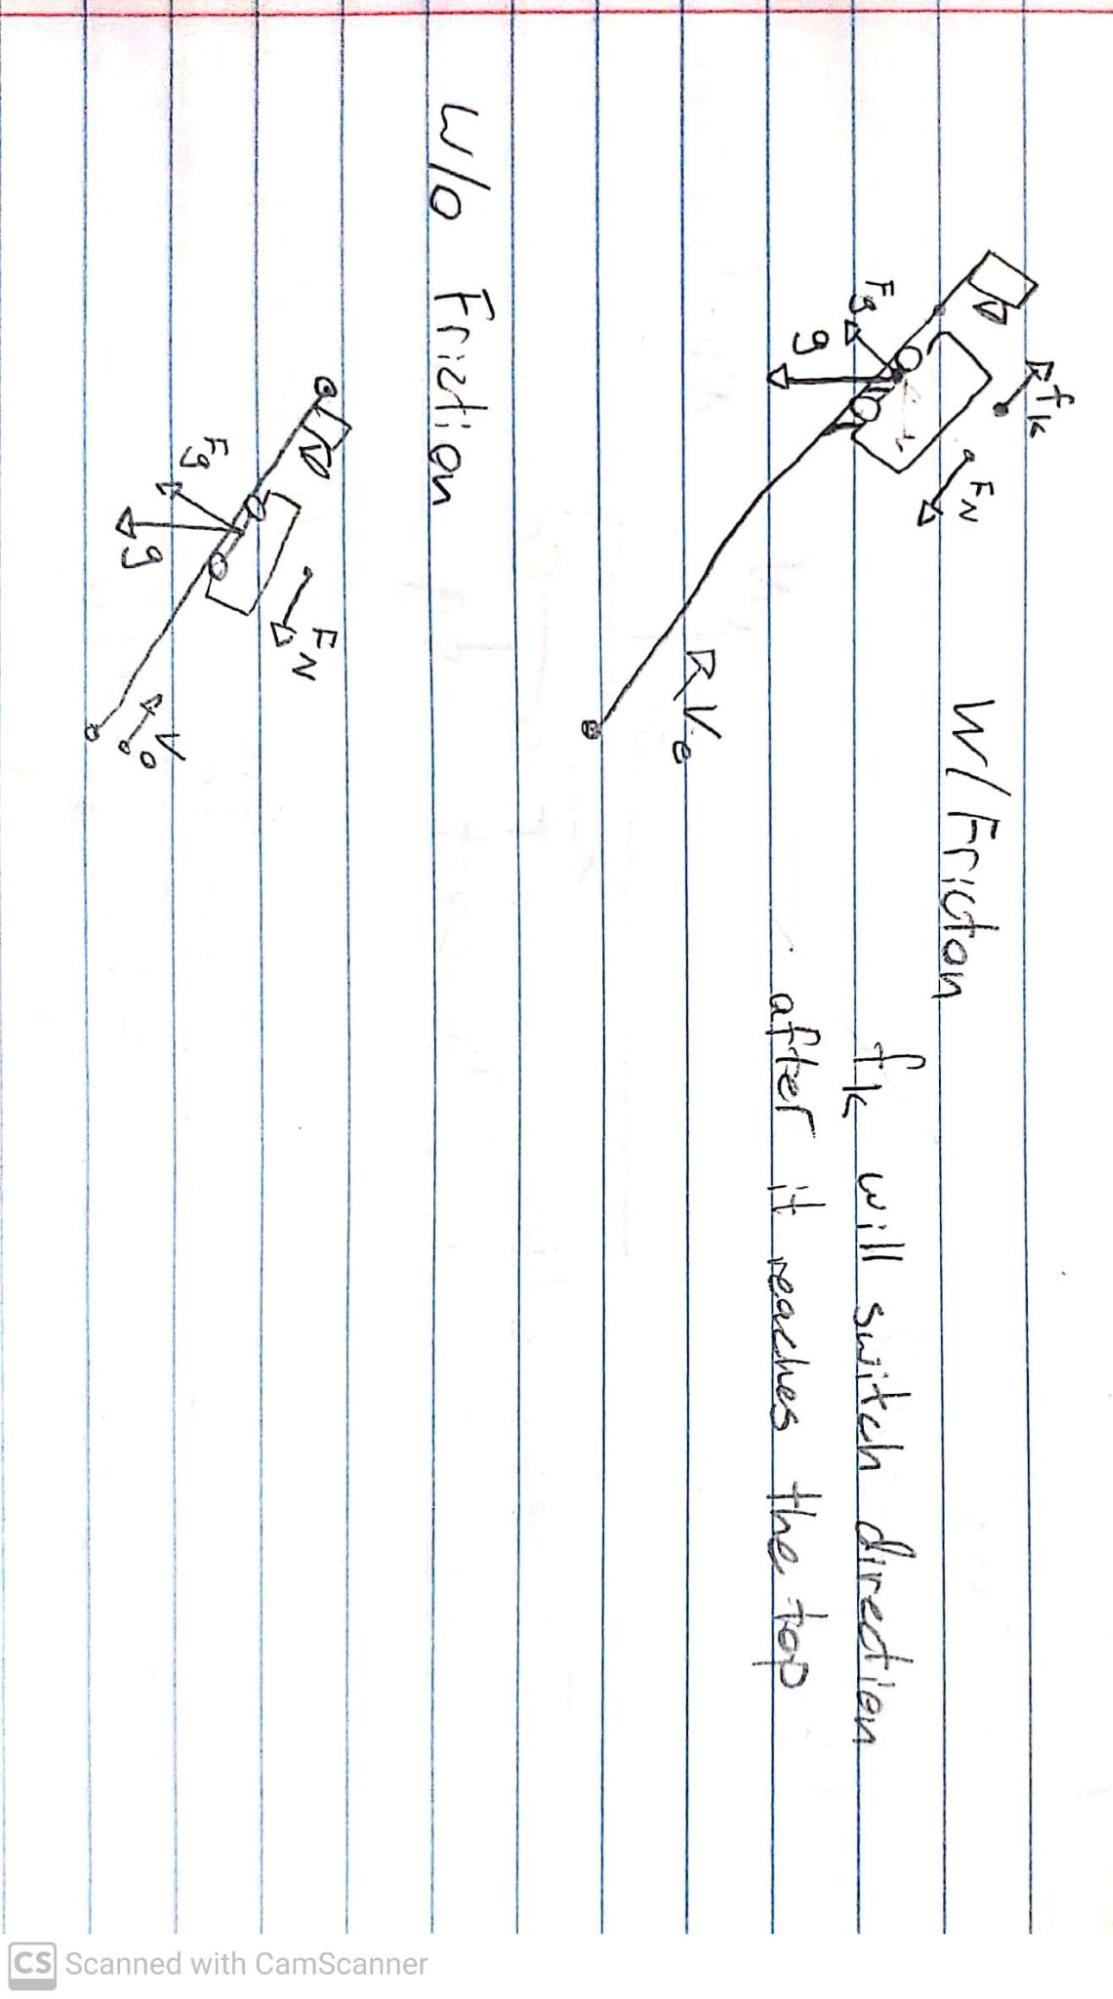 fk
FN
W/ Fricton
Fg
g
fk will switch direction
after it reaches the top
Vo
W/o Friction
FN
Fg
g
Vo
CS Scanned with CamScanner